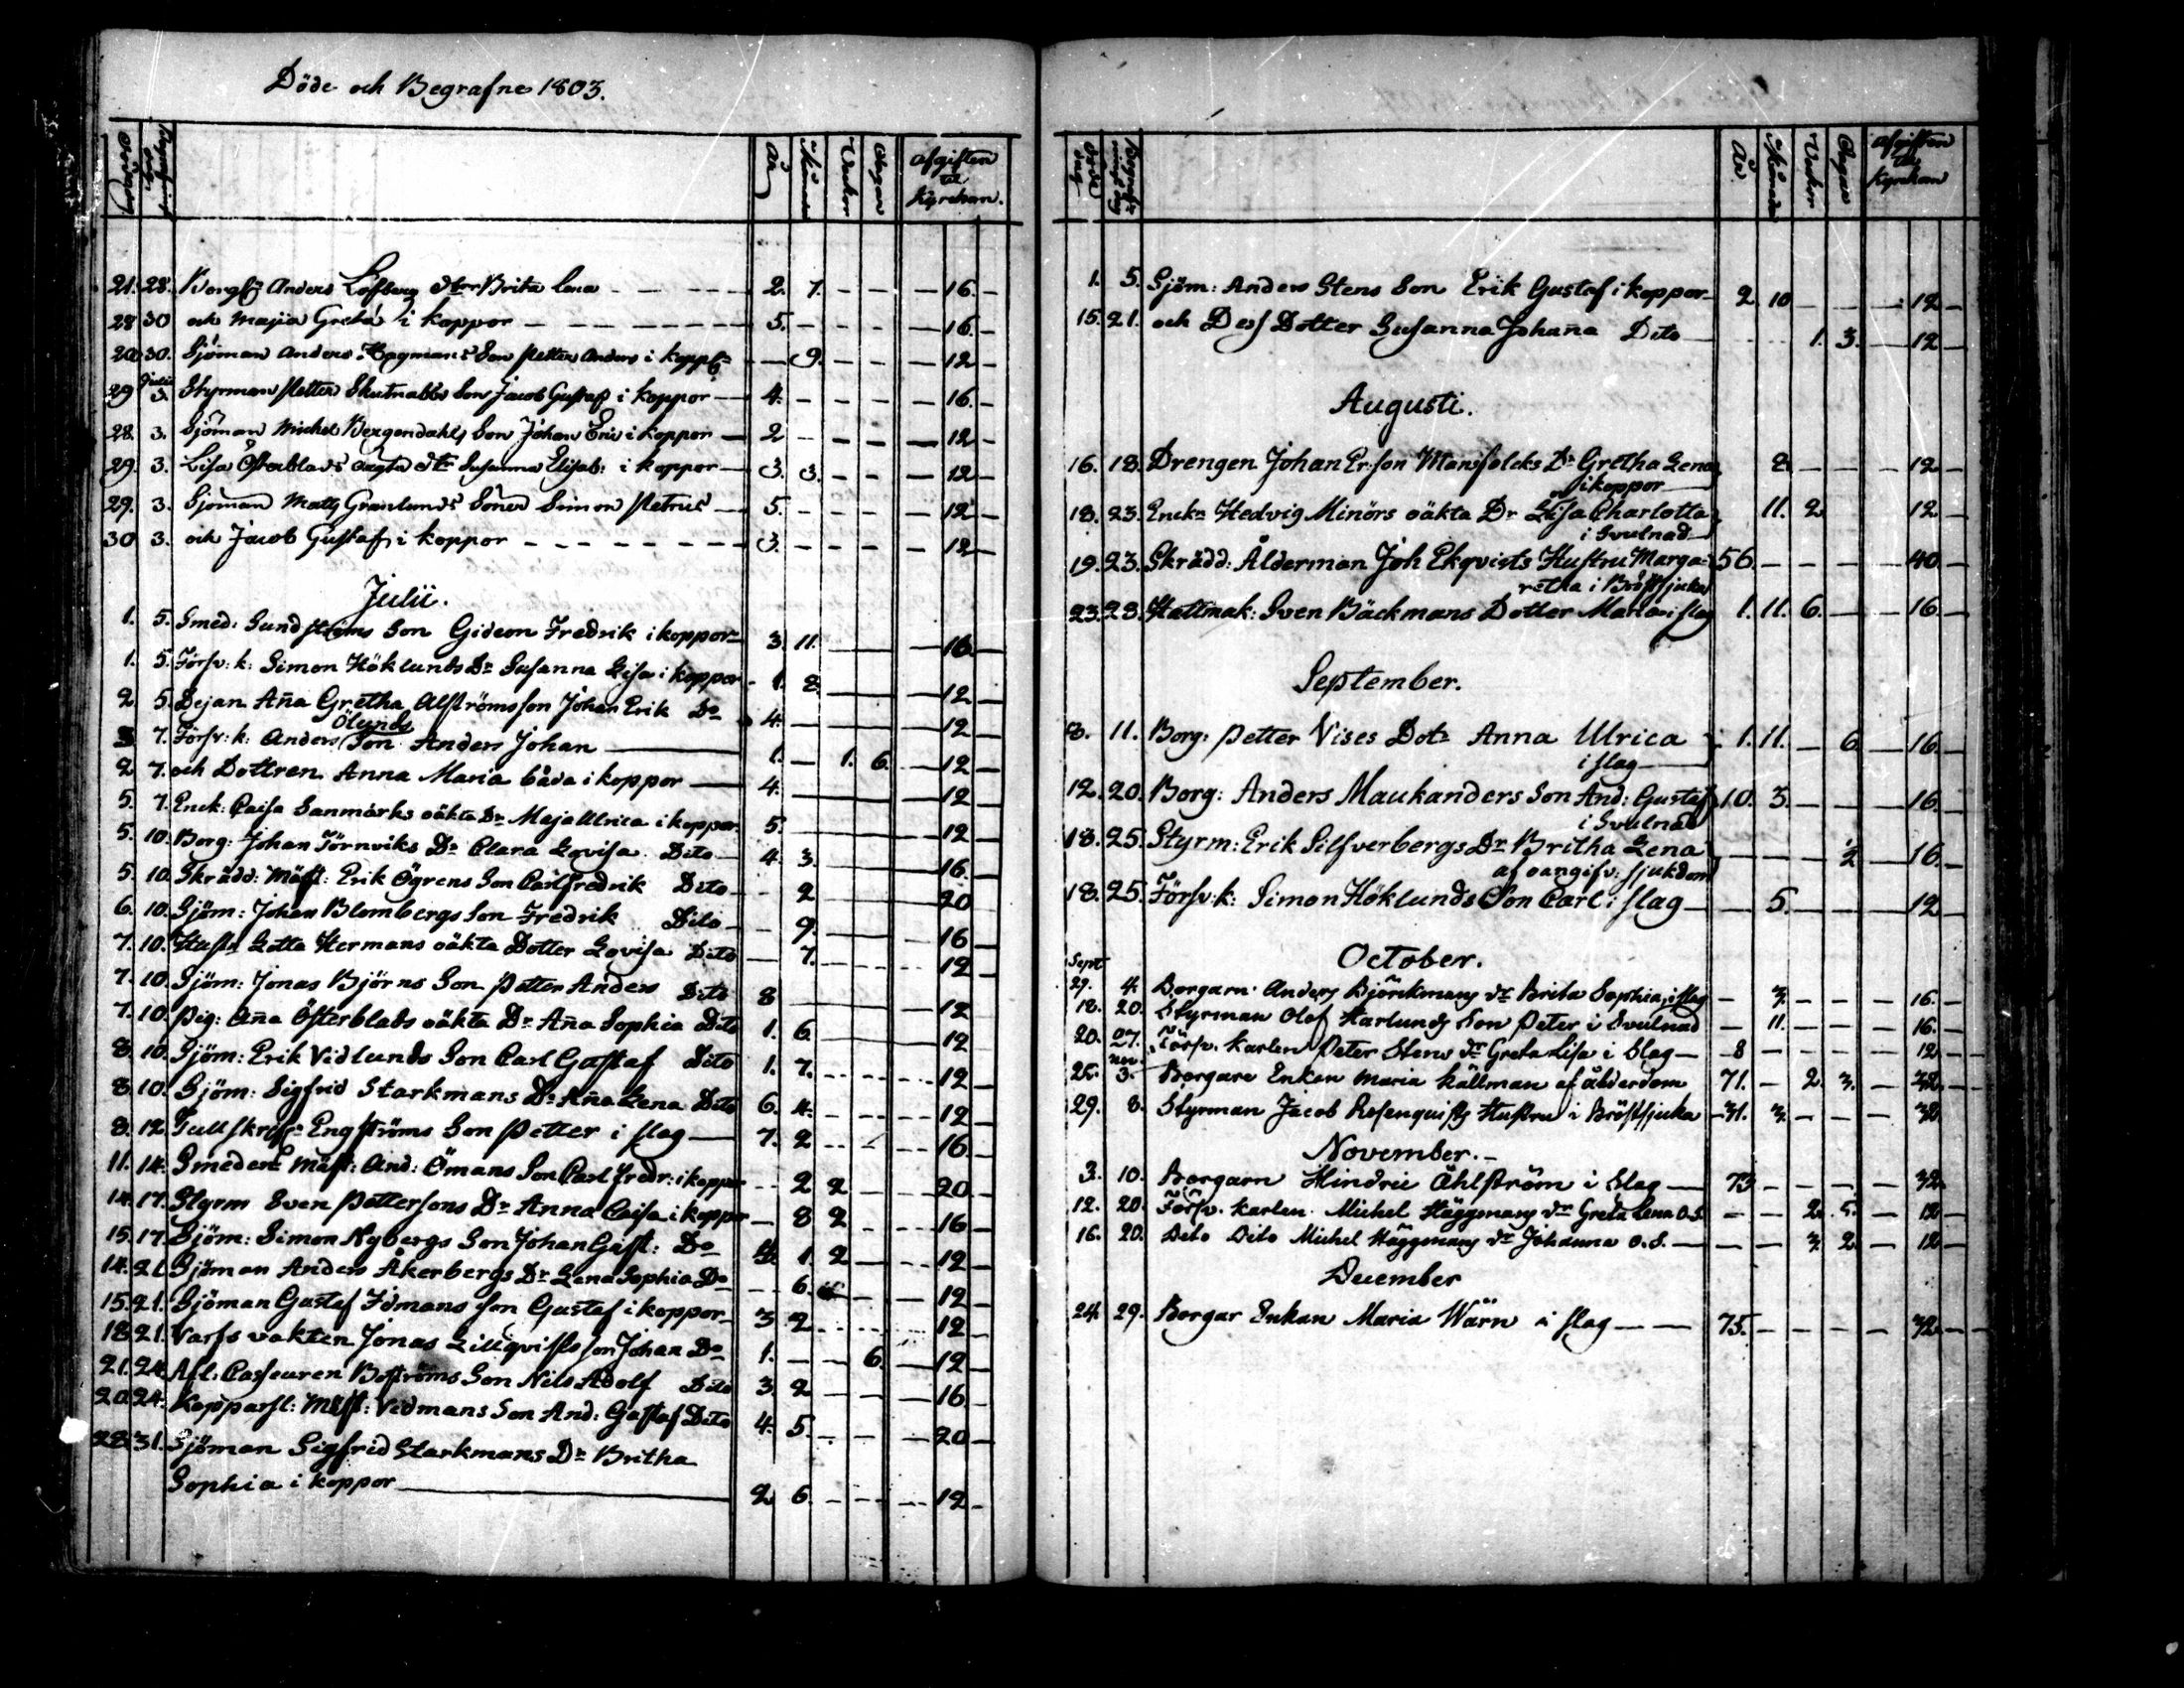 Döde och Begrafne 1803.
År Månader Veckor Dagar afgiften til Kyrckan.
21. 28. Anders Löfberg dtr Brita Lena 2. 7. 16.
28 30 och Majia Greta i koppor 5. 16.
20 30. Sjöman Anders Hagmans Son Petter Anders i kopp: 9. 12
29 Julii 3. Styrman Petter Skutnabbs Son Jacob Gustaf i koppor 4. 16.
28. 3. Sjöman Michel Bergendahls Son Johan Eric i koppor 2 12
29. 3. Lisa Österblads oägta dtr Susanna Elisab: i koppor 3. 3. 12
29. 3. Sjöman Matts Granlunds Söner Simon Petrus 5. 12
30 3. och Jacob Gustaf i koppor 3. 12
Julii.
1. 5. Smed: Sundströms Son Gideon Fredrik i koppor 3. 11. 16.
1. 5. Försv: k: Simon Höklunds Dr Susanna Lisa i koppor 1. 8. 12
2 5. Dejan Aña Gretha Alströms son Johan Erik Do 4. 12
Ölunds
3 7. Försv: k: Anders Son Anders Johan 1. 1. 6. 12
2 7. och Dottren Anna Maria båda i koppor 4. 12
5. 7. Enck: Caisa Sanmarks oäkta Dr Maja Ulrica i koppor 5. 12
5. 10. Borg: Johan Törnviks Dr Clara Lovisa Dito 4. 3. 16.
5. 10. Skrädd: Mäst: Erik Ögrens Son Carl Fredrik Dito 2 20
6. 10. Sjöm: Johan Blombergs Son Fredrik Dito 9. 16
7. 10. Hustr. Lotta Hermans oäkta Dotter Lovisa Dito 7. 12
7. 10. Sjöm: Jonas Björns Son Petter Anders Dito 8 12
7. 10. Pig: Aña Österblads oäkta Dr Aña Sophia Dito 1. 6. 12
8. 10. Sjöm: Erik Vidlunds Son Carl Gustaf Dito 1. 7. 12
8. 10. Sjöm: Sigfrid Starkmans Dr Aña Lena Dito 6. 4. 12
8. 12. Tullskrif: Engströms Son Petter i slag 7. 2 16.
11. 14. Smeden Mäst: And: Ömans Son Carl Fredr: i koppor 2 2 20
14. 17. Styrm Sven Pettersons Dr Anna Caisa i koppor 8 2 16
15. 17. Sjöm: Simon Nybergs Son Johan Gust: Do 1. 2 12
14. 21 Sjöman Anders Åkerbergs Dr Lena Sophia Do 6. 12
15. 21. Sjöman Gustaf Idmans Son Gustaf i koppor 3 2 12
18. 21. Varfs vakten Jonas Lillqvists son Johan Do 1. 6. 12
21. 24. Afl: Casseuren Boströms Son Nils Adolf Dito 3. 2 16
20. 24. Kopparsl: Mäst: Vidmans Son And: Gustaf Dito 4. 5. 20
28. 31. Sjöman Sigfrid Starkmans Dr Britha
Sophia i koppor 2 6. 12
År. Månader Veckor Dagar afgiften til Kyrckan
1. 5. Sjöm: Anders Stens Son Erik Gustaf i koppor 2 10 12
15. 21. och Dess Dotter Susanna Johaña Dito 1. 3. 12
Augusti.
16. 18. Drengen Johan Erson Mansfolcks Dr Gretha Lena 8. 12
i koppor
18. 23. Enck: Hedvig Minörs oäkta Dr Lisa Charlotta 11. 2 12
i Svulnad
19. 23. Skrädd: Ålderman Joh Ekqvists Hustru Marga= 56. 40.
retha i Bröstsjuka
23. 28. Hattmak: Sven Bäckmans Dotter Maria i slag 1. 11. 6. 16.
September.
8. 11. Borg: Petter Vises Dotr Anna Ulrica 1. 11. 6 16.
i slag
12. 20. Borg: Anders Maukanders Son And: Gustaf 10. 3. 16.
i Svulnad
18. 25. Styrm: Erik Silfverbergs Dr Britha Lena ½ 16.
af oangifv: sjukdom
18. 25. Försv: k: Simon Höklunds Son Carl i slag 5. 12
October.
Sept
29. 4. Borgarn Anders Björckmans dr Brita Sophia, i slag 3. 16.
18. 20. Styrman Olof Harlunds Son Peter i Svulnad 11. 16.
20. 27. Försv. karlen Peter Stens dr Greta Lisa i Slag 8 12
nov.
26. 3. Borgare Enkan Maria Källman af ålderdom 71. 2. 3. 32.
29. 8. Styrman Jacob Rosenquists Hustru i Bröstsjuka 31. 3. 32
November.
3. 10. Borgarn Hindric Öhlström i Slag 73 32.
12. 20. Försv. karlen Michel Häggmans dr Greta Lena O.S. 2. 5. 12
16. 20. Dito Dito Michel Häggmans dr Johanna O.S. 3. 2. 12
December
24. 29. Borgar Enkan Maria Wärn i slag 75. 32